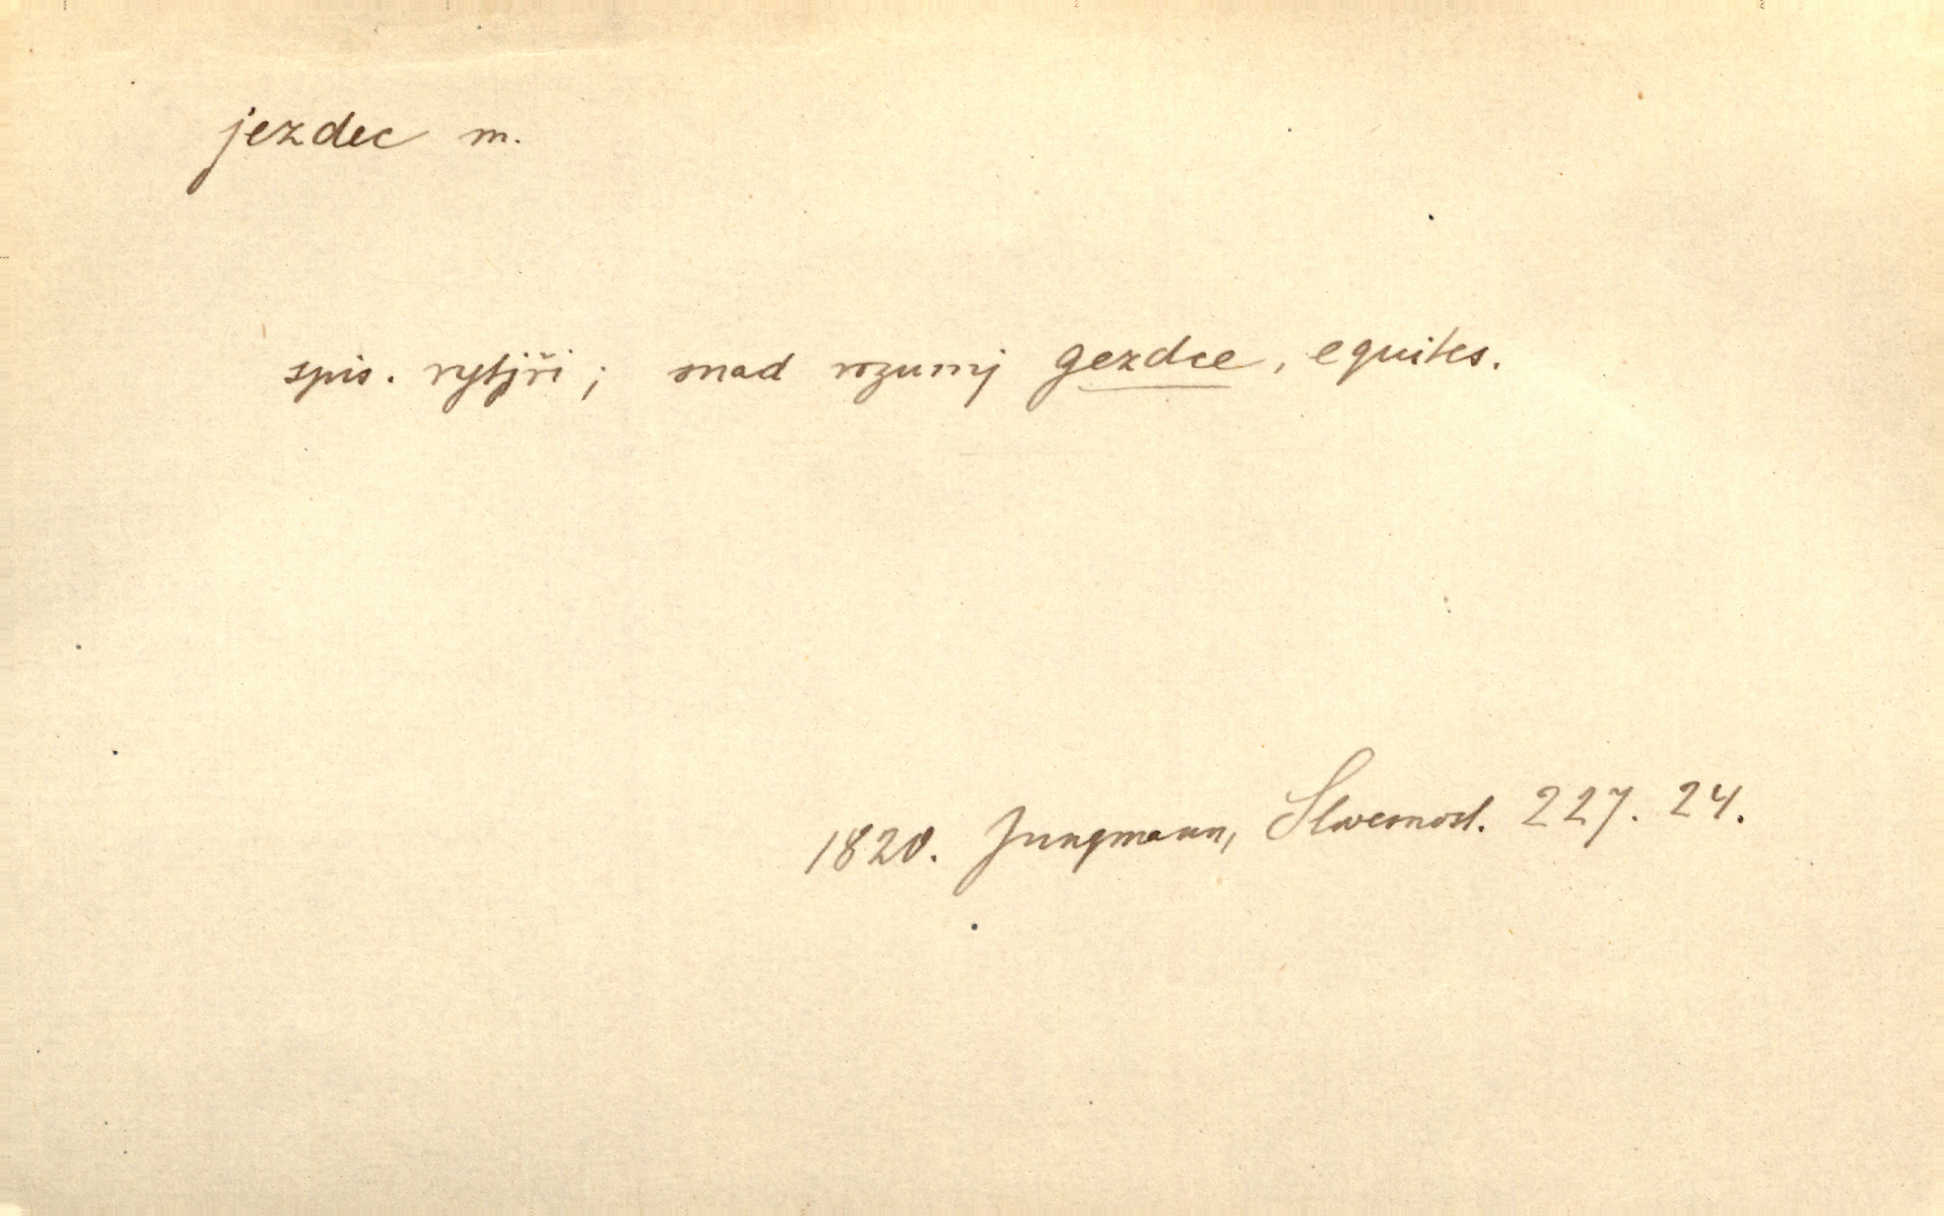 jezdec m.
spis. rytjři; snad rozumj gezdce, equites.
1820. Jungmann, Slovesnost. 227. 24.